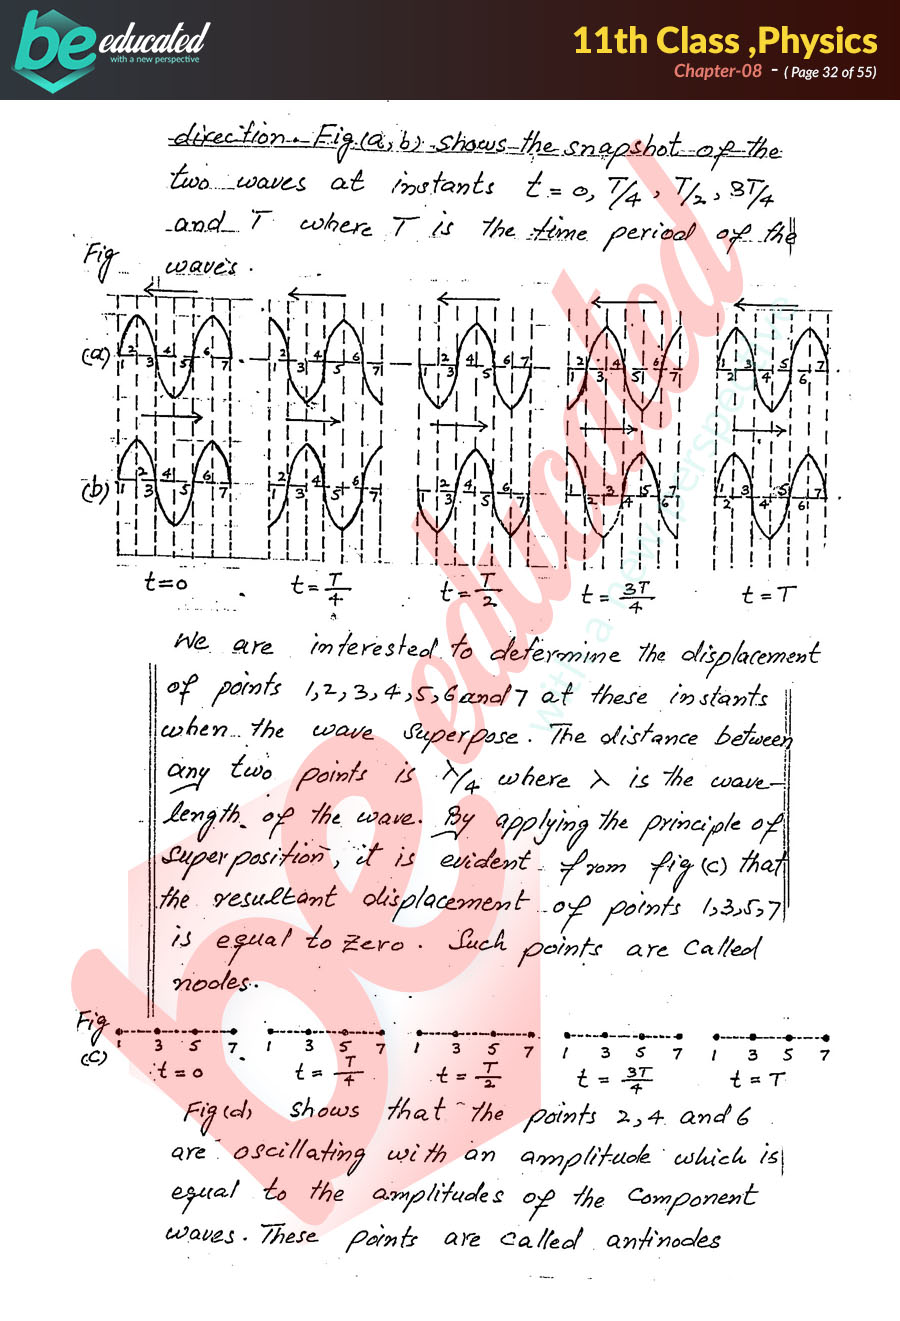 be educated
with a new perspective
11th Class ,Physics
Chapter-08 - ( Page 32 of 55)
direction. Fig(a,b) shows the snapshot of the
two waves at instants t = 0, T/4 , T/2 , 3T/4
and T where T is the time period of the
Fig
waves.
(a) 1 2 3 4 5 6 7 1 2 3 4 5 6 7 1 2 3 4 5 6 7 1 2 3 4 5 6 7 1 2 3 4 5 6 7
(b) 1 2 3 4 5 6 7 1 2 3 4 5 6 7 1 2 3 4 5 6 7 1 2 3 4 5 6 7 1 2 3 4 5 6 7
t=0 t = T/4 t = T/2 t = 3T/4 t = T
We are interested to determine the displacement
of points 1,2,3,4,5,6 and 7 at these instants
when the wave superpose. The distance between
any two points is λ/4 where λ is the wave-
length of the wave. By applying the principle of
superposition, it is evident from fig(c) that
the resultant displacement of points 1,3,5,7
is equal to zero. Such points are called
nodes.
Fig
(c) 1 3 5 7 1 3 5 7 1 3 5 7 1 3 5 7 1 3 5 7
t = 0 t = T/4 t = T/2 t = 3T/4 t = T
Fig(d) shows that the points 2,4 and 6
are oscillating with an amplitude which is
equal to the amplitudes of the component
waves. These points are called antinodes
be educated
with a new perspective